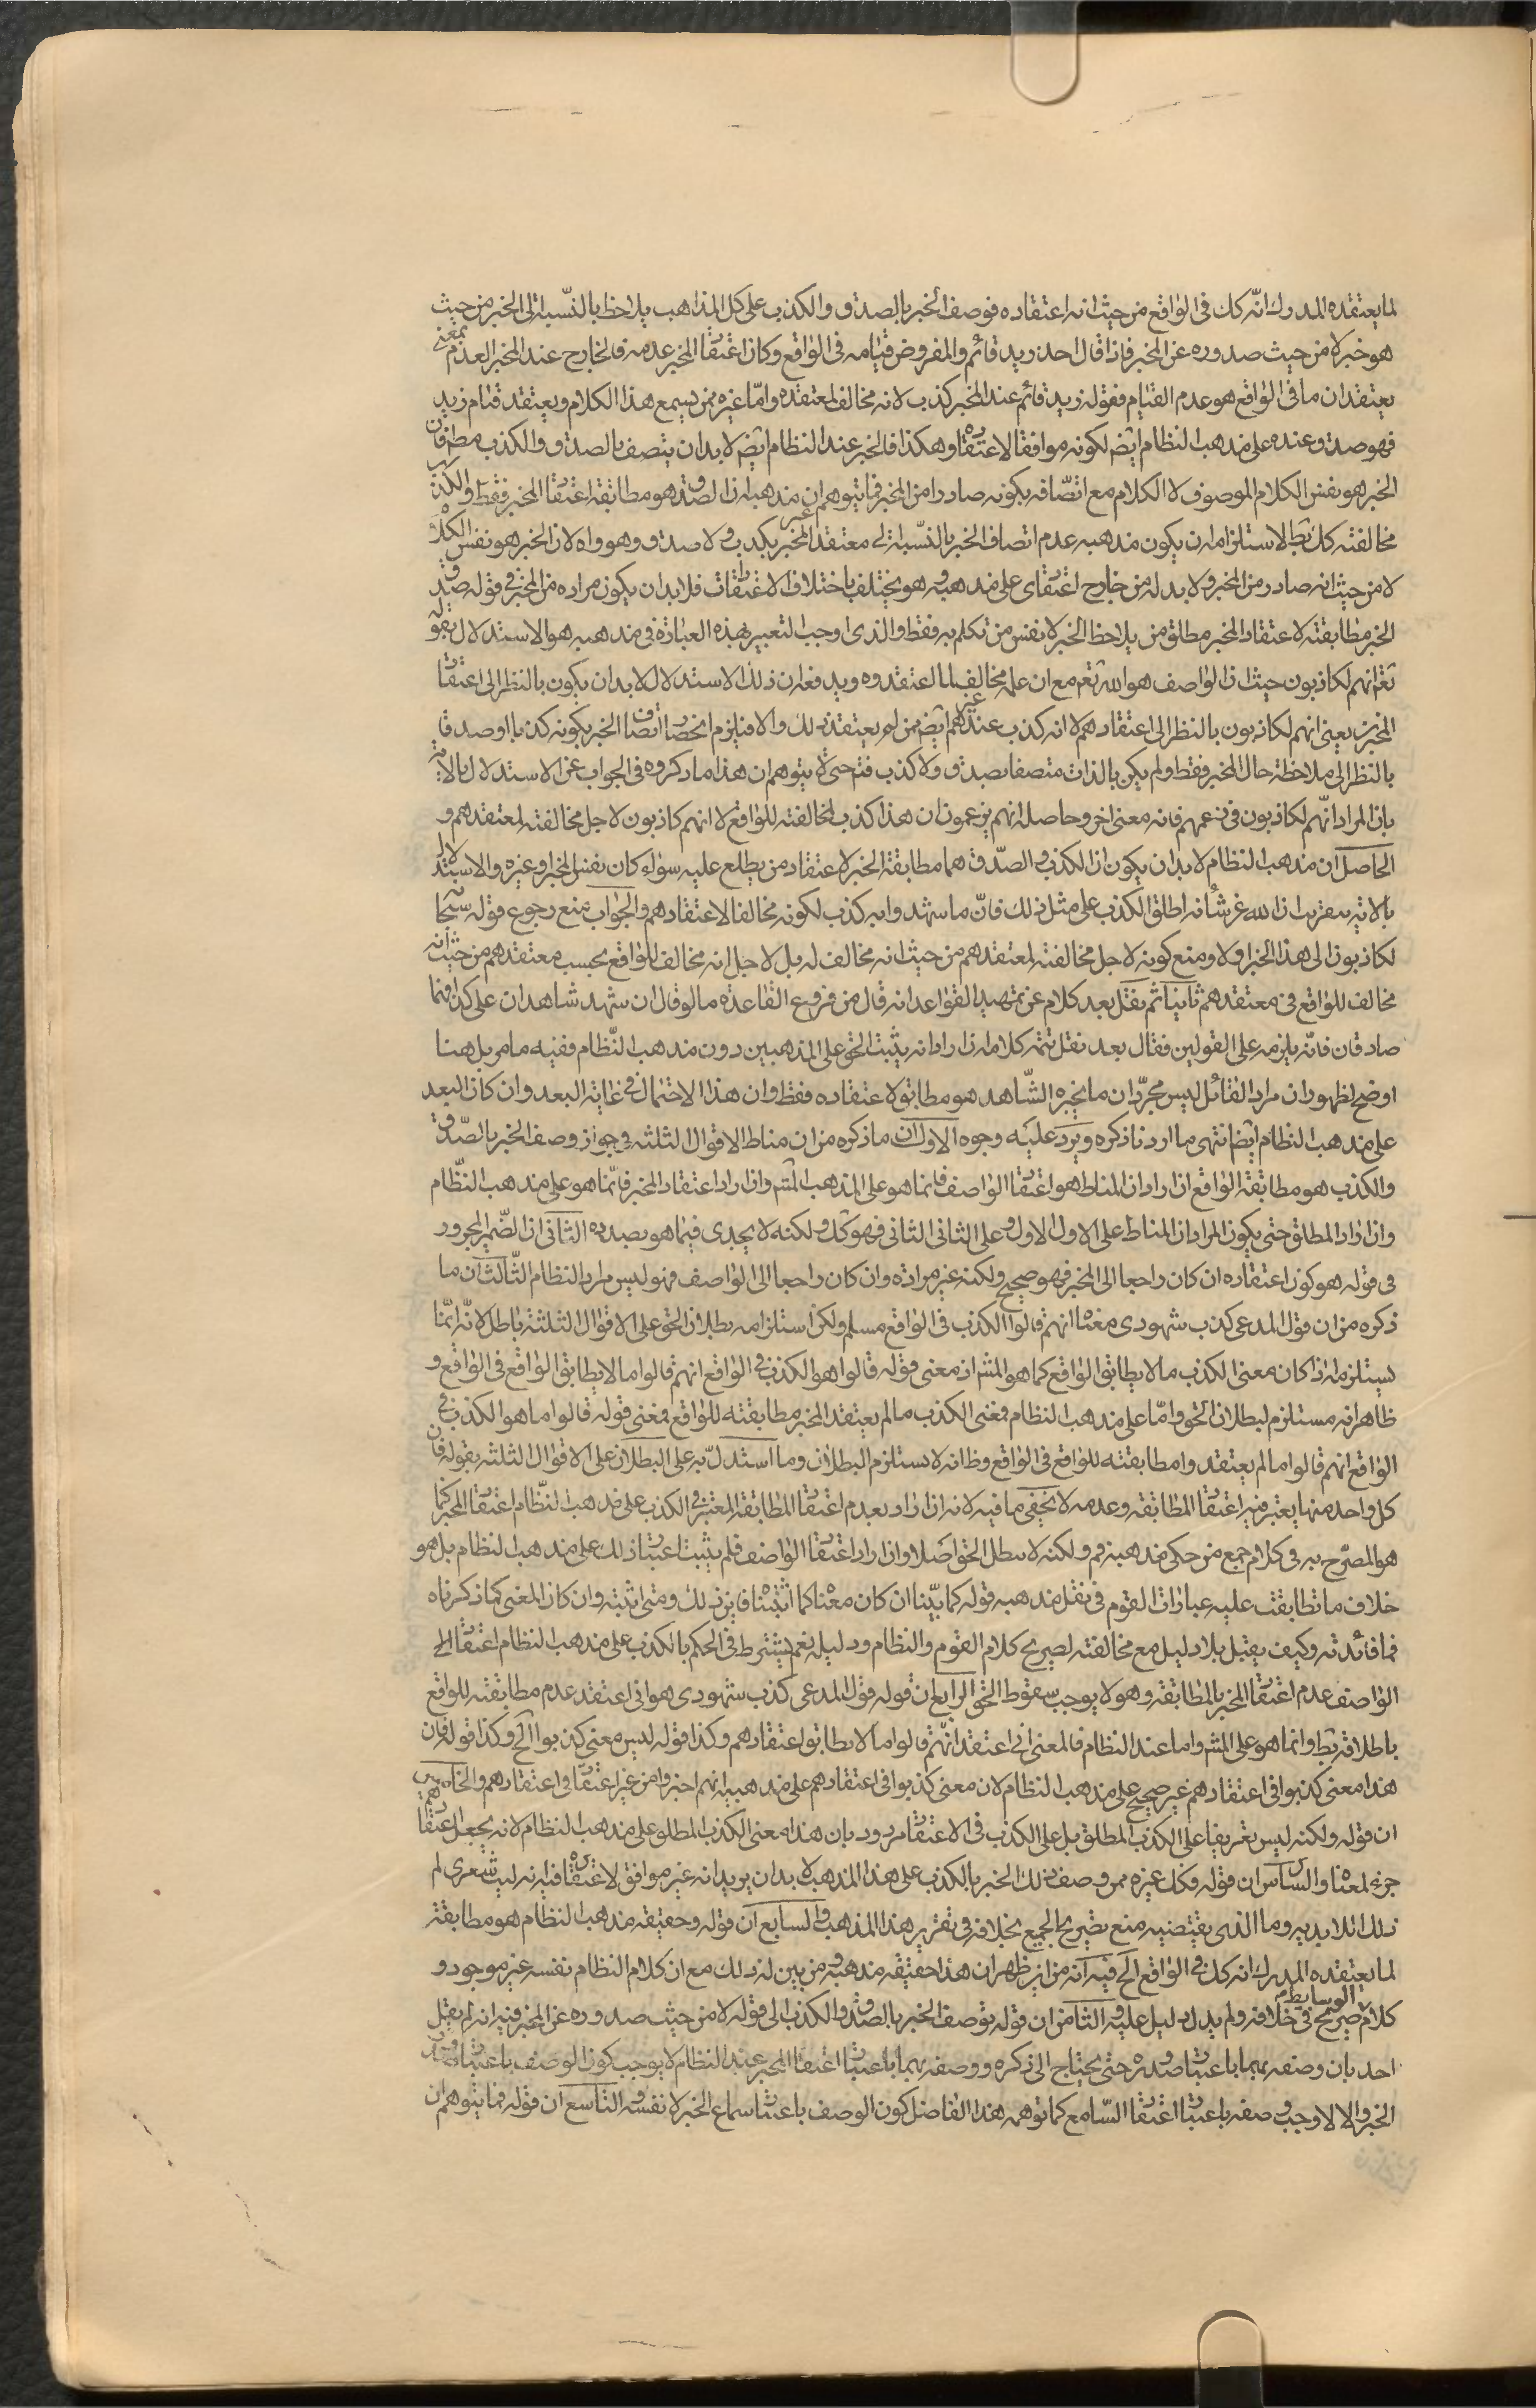 لما يعتقده المدرك انّه كك فى الواقع من حيث انه اعتقاده فوصف الخبر بالصدق والكذب على كل المذاهب يلاحظ بالنّسبة الى الخبر من حيث
هو خبر لا من حيث صدوره عن المخبر فاذا قال احد زيد قائم والمفروض قيامه فى الواقع وكان اعتقا المخبر عدمه فالخارج عند المخبر العدم بمعنى
يعتقد ان ما فى الواقع هو عدم القيام فقوله زيد قائم عند المخبر كذب لانه مخالف لمعتقده وامّا غيره ممن يسمع هذا الكلام ويعتقد قيام زيد
فهو صدق عنده على مذهب النظام ايضا لكونه موافقا لاعتقاده وهكذا فالخبر عند النظام ايضا لابد ان يتصف بالصدق والكذب مط فان
الخبر هو نفس الكلام الموصوف لا الكلام مع اتصّافه بكونه صادرا من المخبر فما يتوهم ان مذهبه ان الصدق هو مطابقة اعتقا المخبر فقط والكذب
مخالفته كك بط لاستلزامه ان يكون مذهبه عدم اتصاف الخبر بالنّسبة الى معتقد غير المخبر بكذب ولا صدق وهو واه لان الخبر هو نفس الكلام
لا من حيث انه صادر من المخبر ولابد له من خارج اعتقاى على مذهبه وهو يختلف باختلاف الاعتقادات فلابد ان يكون مراده من المخبر فى قوله صدق
الخبر مطابقته لاعتقاد المخبر مطلق من يلاحظ الخبر لا نفس من تكلم به فقط والذى اوجب التعبير بهذه العبارة فى مذهبه هو الاستدلال بقوله
تعم انهم لكاذبون حيث ان الواصف هو الله تعم مع ان علمه مخالف لما اعتقدوه ويدفعه ان ذلك الاستدلال لابد ان يكون بالنظر الى اعتقا
المخبرين يعنى انهم لكاذبون بالنظر الى اعتقادهم لا انه كذب عند غيرهم ايضا ممن لم يعتقد ذلك والا فيلزم انحصا اتصا الخبر بكونه كذبا او صدقا
بالنظر الى ملاحظة حال المخبر فقط ولم يكن بالذات متصفا بصدق ولا كذب فتم حتى لا يتوهم ان هذا ما ذكروه فى الجواب عن الاستدلال بالاية
بان المراد انّهم لكاذبون فى زعمهم فانه معنى اخر وحاصله انهم يزعمون ان هذا كذب لمخالفته للواقع لا انهم كاذبون لاجل مخالفته لمعتقدهم و
الحاصل ان مذهب النظام لابد ان يكون ان الكذب والصّدق هما مطابقة الخبر لاعتقاد من يطلع عليه سواء كان نفس المخبر او غيره والاستدلال
بالاية بتقريب ان الله عز شأنه اطلق الكذب على مثل ذلك فانّ ما شهدوا به كذب لكونه مخالفا لاعتقادهم والجواب منع رجوع قوله سبحا
لكاذبون الى هذا الخبر اولا ومنع كونه لاجل مخالفته لمعتقدهم من حيث انه مخالف له بل لاجل انه مخالف للواقع بحسب معتقدهم من حيث انه
مخالف للواقع فى معتقدهم ثانيا ثم نقل بعد كلام عن تمهيد القواعد انه قال من فروع القاعدة ما لو قال ان شهد شاهدان على كذا فهما
صادقان فانّه يلزمه على القولين فقال بعد نقل تتمه كلامه ان اراد انه يثبت الحق على المذهبين دون مذهب النّظام ففيه ما مر بل هنا
اوضح لظهور ان مراد القائل ليس مجرّد ان ما يخبره الشّاهد هو مطابق لاعتقاده فقط وان هذا الاحتمال فى غاية البعد وان كان البعد
على مذهب النظام ايضا انتهى ما اردنا ذكره ويرد عليه وجوه الاول ان ما ذكره من ان مناط الاقوال الثلثه فى جواز وصف الخبر بالصّدق
والكذب هو مطابقة الواقع ان اراد ان المناط هو اعتقا الواصف فانما هو على المذهب المش وان اراد اعتقاد المخبر فانّما هو على مذهب النّظام
وان اراد المطلق حتى يكون المراد ان المناط على الاول الاول وعلى الثانى الثانى فهو كك ولكنه لا يجدى فيما هو بصدده الثانى ان الضّمير المجرور
فى قوله هو كون اعتقاده ان كان راجعا الى المخبر فهو صحيح ولكنه غير مراده وان كان راجعا الى الواصف فهو ليس مراد النظام الثّالث ان ما
ذكره من ان قول المدعى كذب شهودى معناه انهم قالوا الكذب فى الواقع مسلم ولكن استلزامه بطلان الحق على الاقوال الثلثة باطل لانّه انّما
يستلزمه اذا كان معنى الكذب ما لا يطابق الواقع كما هو المش اذ معنى قوله قالوا هو الكذب فى الواقع انهم قالوا ما لا يطابق الواقع فى الواقع و
ظاهر انه مستلزم لبطلان الحق وامّا على مذهب النظام فمعنى الكذب ما لم يعتقد المخبر مطابقته للواقع فمعنى قوله قالوا ما هو الكذب فى
الواقع انهم قالوا ما لم يعتقدوا مطابقته للواقع فى الواقع وظ انه لا يستلزم البطلان وما استدلّ به على البطلان على الاقوال الثلثه بقوله فان
كل واحد منها يعتبر فيه اعتقا المطابقه وعدمه لا يخفى ما فيه لانه ان اراد بعدم اعتقا المطابقة المعتبر فى الكذب على مذهب النّظام اعتقا المخبر كما
هو المصرّح به فى كلام جمع من حكى مذهبه فم ولكنه لا يبطل الحق اصلا وان اراد اعتقا الواصف فلم يثبت اعتبا ذلك على مذهب النظام بل هو
خلاف ما تطابقت عليه عبارات القوم فى نقل مذهبه قوله كما بيّنا ان كان معناه كما اثبتنا فاين ذلك ومتى اثبته وان كان المعنى كما ذكرناه
فما فائدته وكيف يقبل بلا دليل مع مخالفته لصريح كلام القوم والنظام ودليله نعم يشترط فى الحكم بالكذب على مذهب النظام اعتقا الى
الواصف عدم اعتقا المخبر بالمطابقه وهو لا يوجب سقوط الحق الرابع ان قوله قول المدعى كذب شهودى هو انى اعتقد عدم مطابقته للواقع
باطلاقه بط وانما هو على المش واما عند النظام فالمعنى انى اعتقد انّهم قالوا ما لا يطابق اعتقادهم وكذا قوله ليس معنى كذبوا الخ وكذا قوله فان
هذا معنى كذبوا فى اعتقادهم غير صحيح على مذهب النظام لان معنى كذبوا فى اعتقادهم على مذهبه انهم اخبروا من غير اعتقا فى اعتقادهم والخامس
ان قوله ولكنه ليس تعريفا على الكذب المطلق بل على الكذب فى الاعتقا مردود بان هذا معنى الكذب المطلق على مذهب النظام لانه يجعل اعتقا
جزء لمعناه والسادس ان قوله فكل غيره ممن وصف ذلك الخبر بالكذب على هذا المذهب لابد ان يريد انه غير موافق لاعتقاده فيه انه ليت شعرى لم
ذلك اللابديه وما الذى يقتضيه منع تصريح الجميع بخلافه فى تقرير هذا المذهب والسابع ان قوله وحقيقه مذهب النظام هو مطابقة
لما يعتقده المدرك انه كك فى الواقع الخ فيه انه من اين ظهر ان هذا حقيقه مذهبه ومن بين له ذلك مع ان كلام النظام نفسه غير موجود و
كلام الوسايط صريح فى خلافه ولم يدل دليل عليه الثامن ان قوله بوصف الخبر بالصدق والكذب الى قوله لا من حيث صدوره عن المخبر فيه انه لم يقل
احد بان وصفه بهما باعتبا صدوره حتى يحتاج الى ذكره ووصفه بهما باعتبا اعتقا المخبر عند النظام لا يوجب كون الوصف باعتبا
الخبر والا لاوجب وصفه باعتبا اعتقا السّامع كما توهمه هذا الفاضل كون الوصف باعتبا سماع الخبر لا نفسه التاسع ان قوله فما يتوهم ان